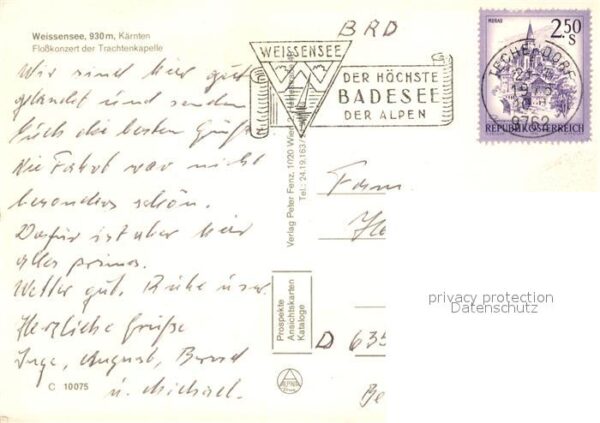 Weissensee, 930 m, Kärnten
Floßkonzert der Trachtenkapelle
Wir sind hier gut
gelandet und senden
Euch die besten Grüße
Die Fahrt war nicht
besonders schön.
Dafür ist aber hier
alles prima.
Wetter gut, Ruhe usw.
Herzliche Grüße
Inge, August, Bernd
u. Michael.
C 10075
BRD
WEISSENSEE
DER HÖCHSTE
BADESEE
DER ALPEN
MURAU
2.50
S
REPUBLIK ÖSTERREICH
TECHENDORF
9762
Verlag Peter Fenz, 1020 Wien
Tel.: 24.19.163
Prospekte
Ansichtskarten
Kataloge
Fam
D 635
privacy protection
Datenschutz